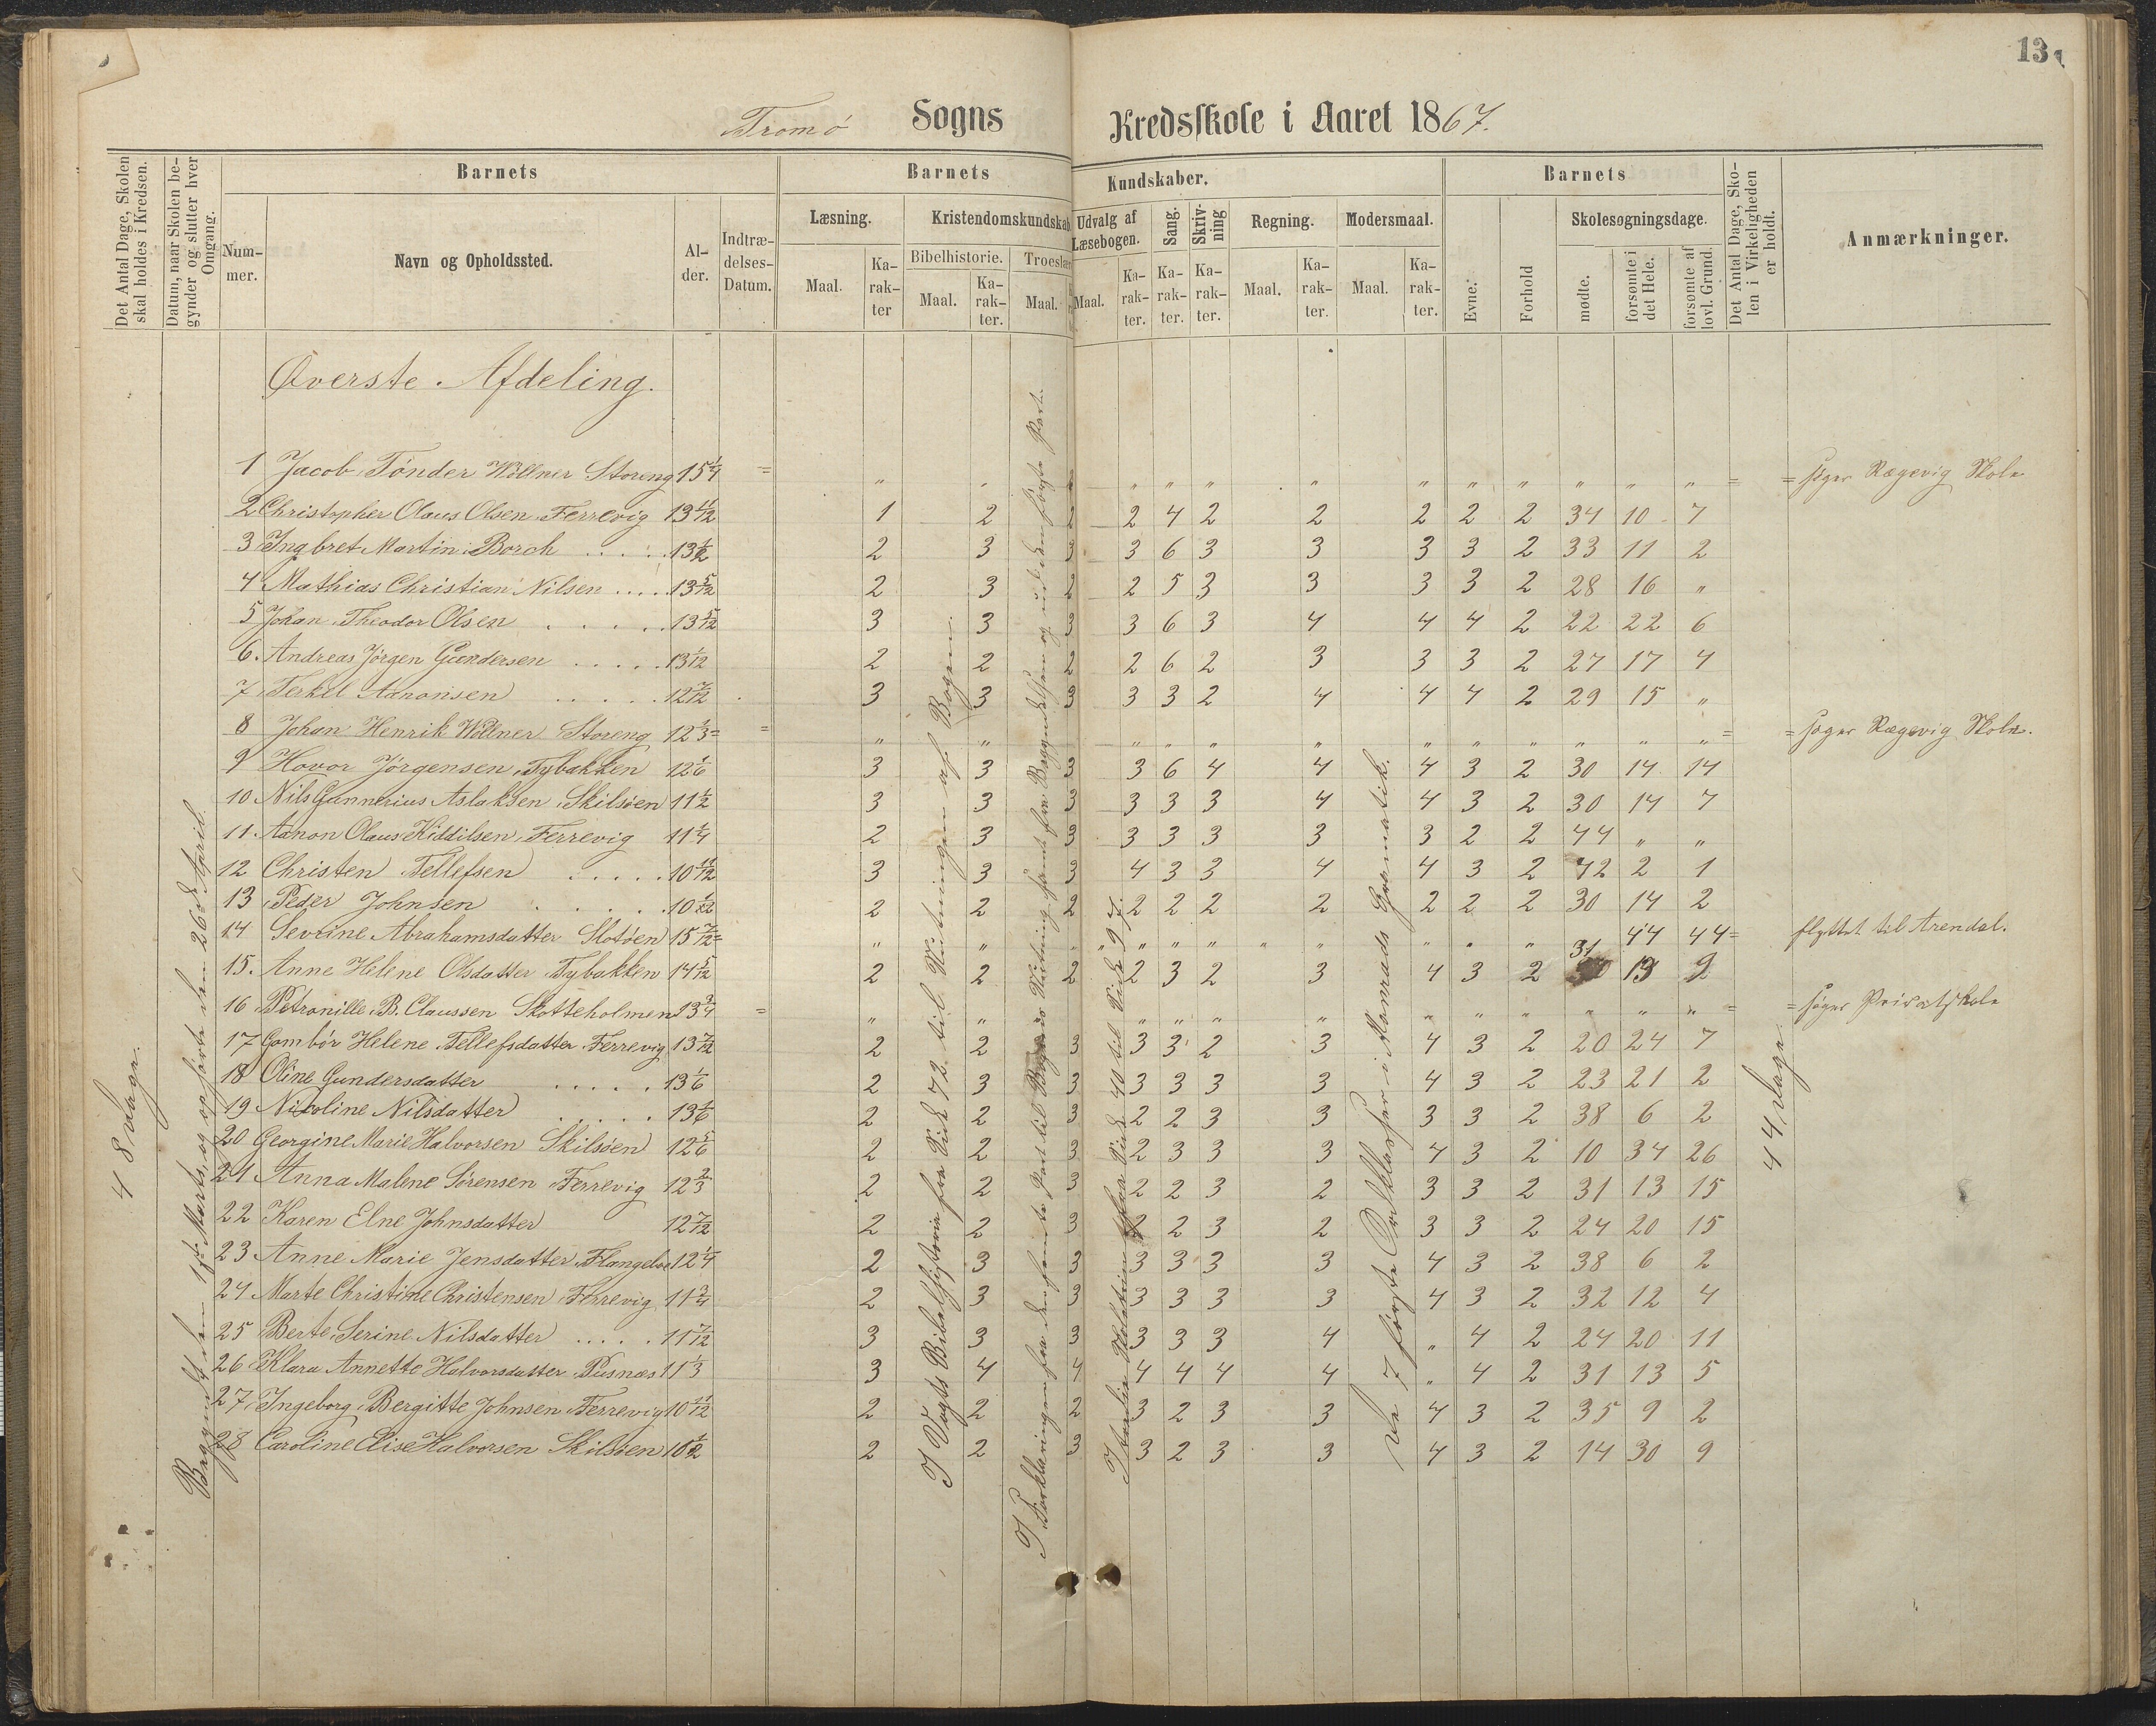 13
Tromø Sogns Kredsskole i Aaret 1867.
Det Antal Dage, Skolen skal holdes i Kredsen.
Datum, naar Skolen begynder og slutter hver Omgang.
Barnets
Barnets Kundskaber.
Barnets
Det Antal Dage, Skolen i Virkeligheden er holdt.
Anmærkninger.
Nummer.
Navn og Opholdssted.
Alder.
Indtrædelses-Datum.
Læsning.
Kristendomskundskab
Udvalg af Læsebogen.
Sang.
Skrivning
Regning.
Modersmaal.
Evne.
Forhold
Skolesøgningsdage.
Bibelhistorie.
Troeslære
Maal.
Karakter
Maal.
Karakter.
Maal.
Maal.
Karakter.
Karakter.
Karakter.
Maal.
Karakter.
Maal.
Karakter.
mødte.
forsømte i det Hele.
forsømte af lovl. Grund.
Øverste Afdeling.
48 Dage.
Begyndt den 1ste Marts, og ophørte den 26de April.
I Vogts Bibelhistorie fra Side 72 til Slutningen af Bogen.
44 Dage.
1 Jacob Tønder Wöllner Storeng 15 1/4 = " " " " " " " " " " " = = søger Rægevig Skole
2 Christopher Olaus Olsen Færrevig 13 11/12 1 2 2 2 4 2 2 2 2 2 34 10 7
3 Ingbret Martin Borch ..... 13 1/2 2 3 3 3 6 3 3 3 3 2 33 11 2
4 Mathias Christian Nilsen .... 13 5/12 2 3 2 2 5 3 3 3 3 2 28 16 "
5 Johan Theodor Olsen ..... 13 5/12 3 3 3 3 6 3 4 4 4 2 22 22 6
6. Andreas Jørgen Gundersen ..... 13 1/12 2 2 2 2 6 2 3 3 3 2 27 17 4
7 Terkel Aanonsen ..... 12 7/12 3 3 3 3 3 2 4 4 4 2 29 15 "
8 Johan Henrik Wöllner Storeng 12 1/3 = = " " " " " " " " " " " " = = søger Rægevig Skole.
9 Hovor Jørgensen Tybakken 12 1/6 3 3 3 3 6 4 4 4 3 2 30 14 14
10 Nils Gunnerius Aslaksen Skilsøen 11 1/2 3 3 3 3 3 3 4 4 3 2 30 14 7
11. Aanon Olaus Kiddilsen Færrevig 11 1/4 2 3 3 3 3 3 3 3 2 2 44 " "
12 Christen Tellefsen ..... 10 11/12 3 3 3 4 3 3 4 4 3 2 42 2 1
13 Peder Johnsen ..... 10 1/12 2 2 2 2 2 2 2 2 2 2 30 14 2
14 Sevrine Abrahamsdatter Slotøen 15 7/12 = " " " " " " " " " " 44 44 = flyttet til Arendal.
15. Anne Helene Olsdatter Tybakken 14 5/12 2 2 2 2 3 2 3 4 3 2 31 13 2
16 Petronille B. Claussen Skotteholmen 13 3/4 = " " " " " " " " " " " = = søger Privatskole
17 Gombør Helene Tellefsdatter Færrevig 13 7/12 2 2 3 3 3 2 3 4 3 2 20 24 7
18 Oline Gundersdatter ..... 13 1/6 2 3 3 3 3 3 3 4 3 2 23 21 2
19 Nicoline Nilsdatter ..... 13 1/6 2 2 3 2 2 3 3 3 3 2 38 6 2
20 Georgine Marie Halvorsen Skilsøen 12 5/6 2 2 3 2 3 3 3 4 3 2 10 34 26
21 Anna Malene Sørensen Færrevig 12 2/3 2 2 3 2 2 3 2 3 3 2 31 13 15
22 Karen Elne Johnsdatter 12 7/12 2 2 3 2 2 3 2 3 3 2 24 20 15
23 Anne Marie Jensdatter 12 1/4 2 3 3 3 3 3 3 4 3 2 38 6 2
24 Marte Christine Christensen Færrevig 11 3/4 2 3 3 3 3 3 3 4 3 2 32 12 4
25 Berte Serine Nilsdatter ..... 11 7/12 3 3 3 3 3 3 4 " 4 2 24 20 11
26 Klara Annette Halvorsdatter Pusnæs 11 1/3 3 4 4 4 4 4 4 " 4 2 31 13 5
27 Ingeborg Bergitte Johnsen Færrevig 10 11/12 2 2 2 3 2 3 3 4 3 2 35 9 2
28 Caroline Elise Halvorsen Skilsøen 10 1/2 2 2 3 3 2 3 3 4 3 2 14 30 9